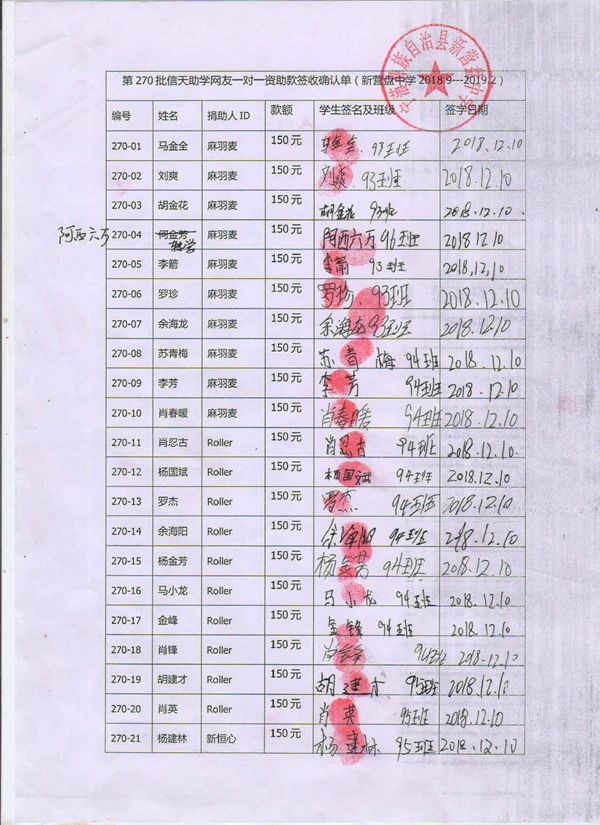 宁蒗彝族自治县新营盘中学
第270批信天助学网友一对一资助款签收确认单（新营盘中学2018.9---2019.2）
编号 姓名 捐助人ID 款额 学生签名及班级 签字日期
270-01 马金全 麻羽麦 150元 马金全.93班 2018.12.10
270-02 刘爽 麻羽麦 150元 刘爽.93班 2018.12.10
270-03 胡金花 麻羽麦 150元 胡金花 93班 2018.12.10
阿西六万 270-04 何金芳 麻羽麦 150元 阿西六万 96班 2018.12.10
270-05 李箭 麻羽麦 150元 李箭 93班 2018.12.10
270-06 罗珍 麻羽麦 150元 罗珍.93班 2018.12.10
270-07 余海龙 麻羽麦 150元 余海龙 93班 2018.12.10
270-08 苏青梅 麻羽麦 150元 苏青梅 94班 2018.12.10
270-09 李芳 麻羽麦 150元 李芳 94班 2018.12.10
270-10 肖春暖 麻羽麦 150元 肖春暖 94班 2018.12.10
270-11 肖忍古 Roller 150元 肖忍古 94班 2018.12.10
270-12 杨国斌 Roller 150元 杨国斌 94班 2018.12.10
270-13 罗杰 Roller 150元 罗杰 94班 2018.12.10
270-14 余海阳 Roller 150元 余海阳 94班 2018.12.10
270-15 杨金芳 Roller 150元 杨金芳 94班 2018.12.10
270-16 马小龙 Roller 150元 马小龙 94班 2018.12.10
270-17 金峰 Roller 150元 金锋 94班 2018.12.10
270-18 肖锋 Roller 150元 94班 2018.12.10
270-19 胡建才 Roller 150元 胡建才 95班 2018.12.10
270-20 肖英 Roller 150元 肖英 95班 2018.12.10
270-21 杨建林 新恒心 150元 杨建林 95班 2018.12.10